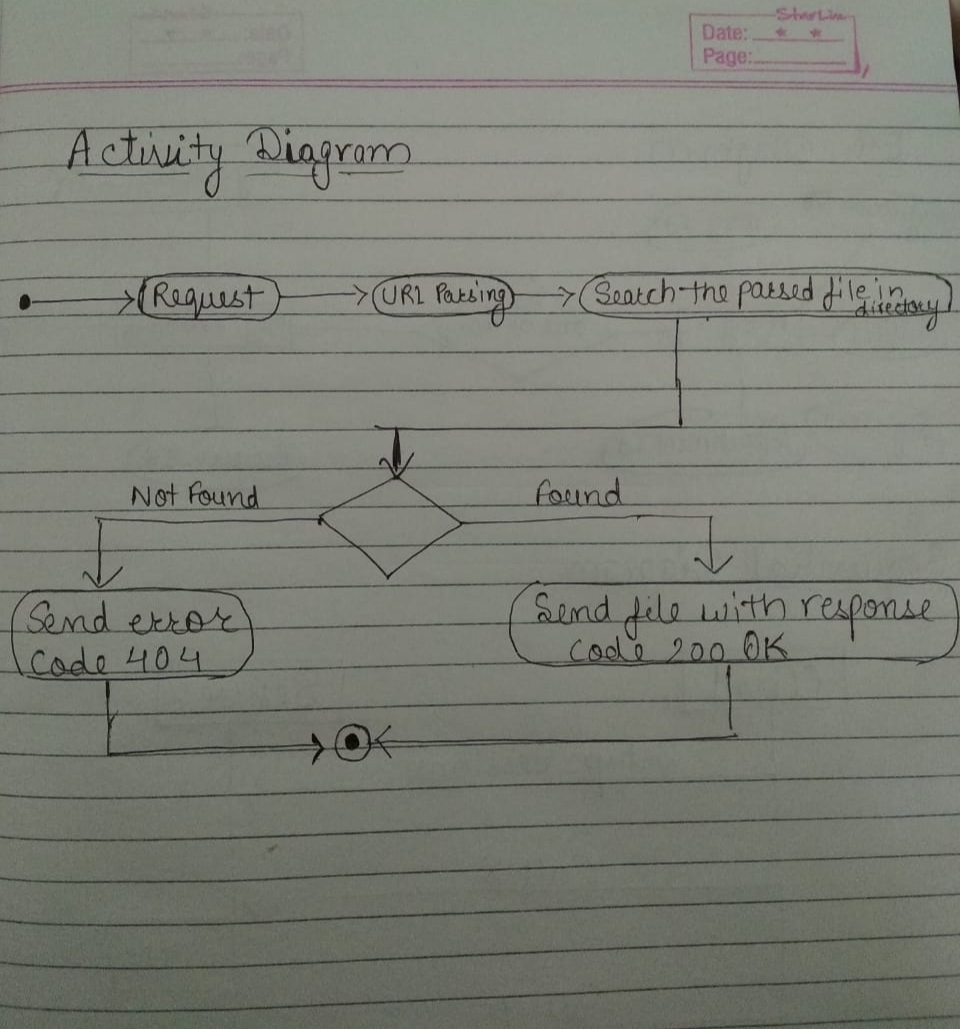 StarLine
Date:
Page:
Activity Diagram
Request
URL Parsing
Search the parsed file in
directory
Not Found
Found
Send error
Code 404
Send file with response
code 200 OK